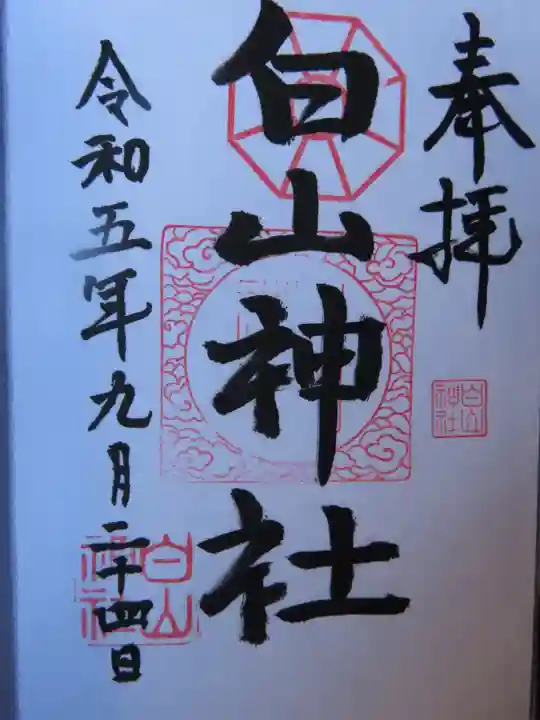 奉拝
白山神社
令和五年九月二十四日
白山
神社
白山
神社